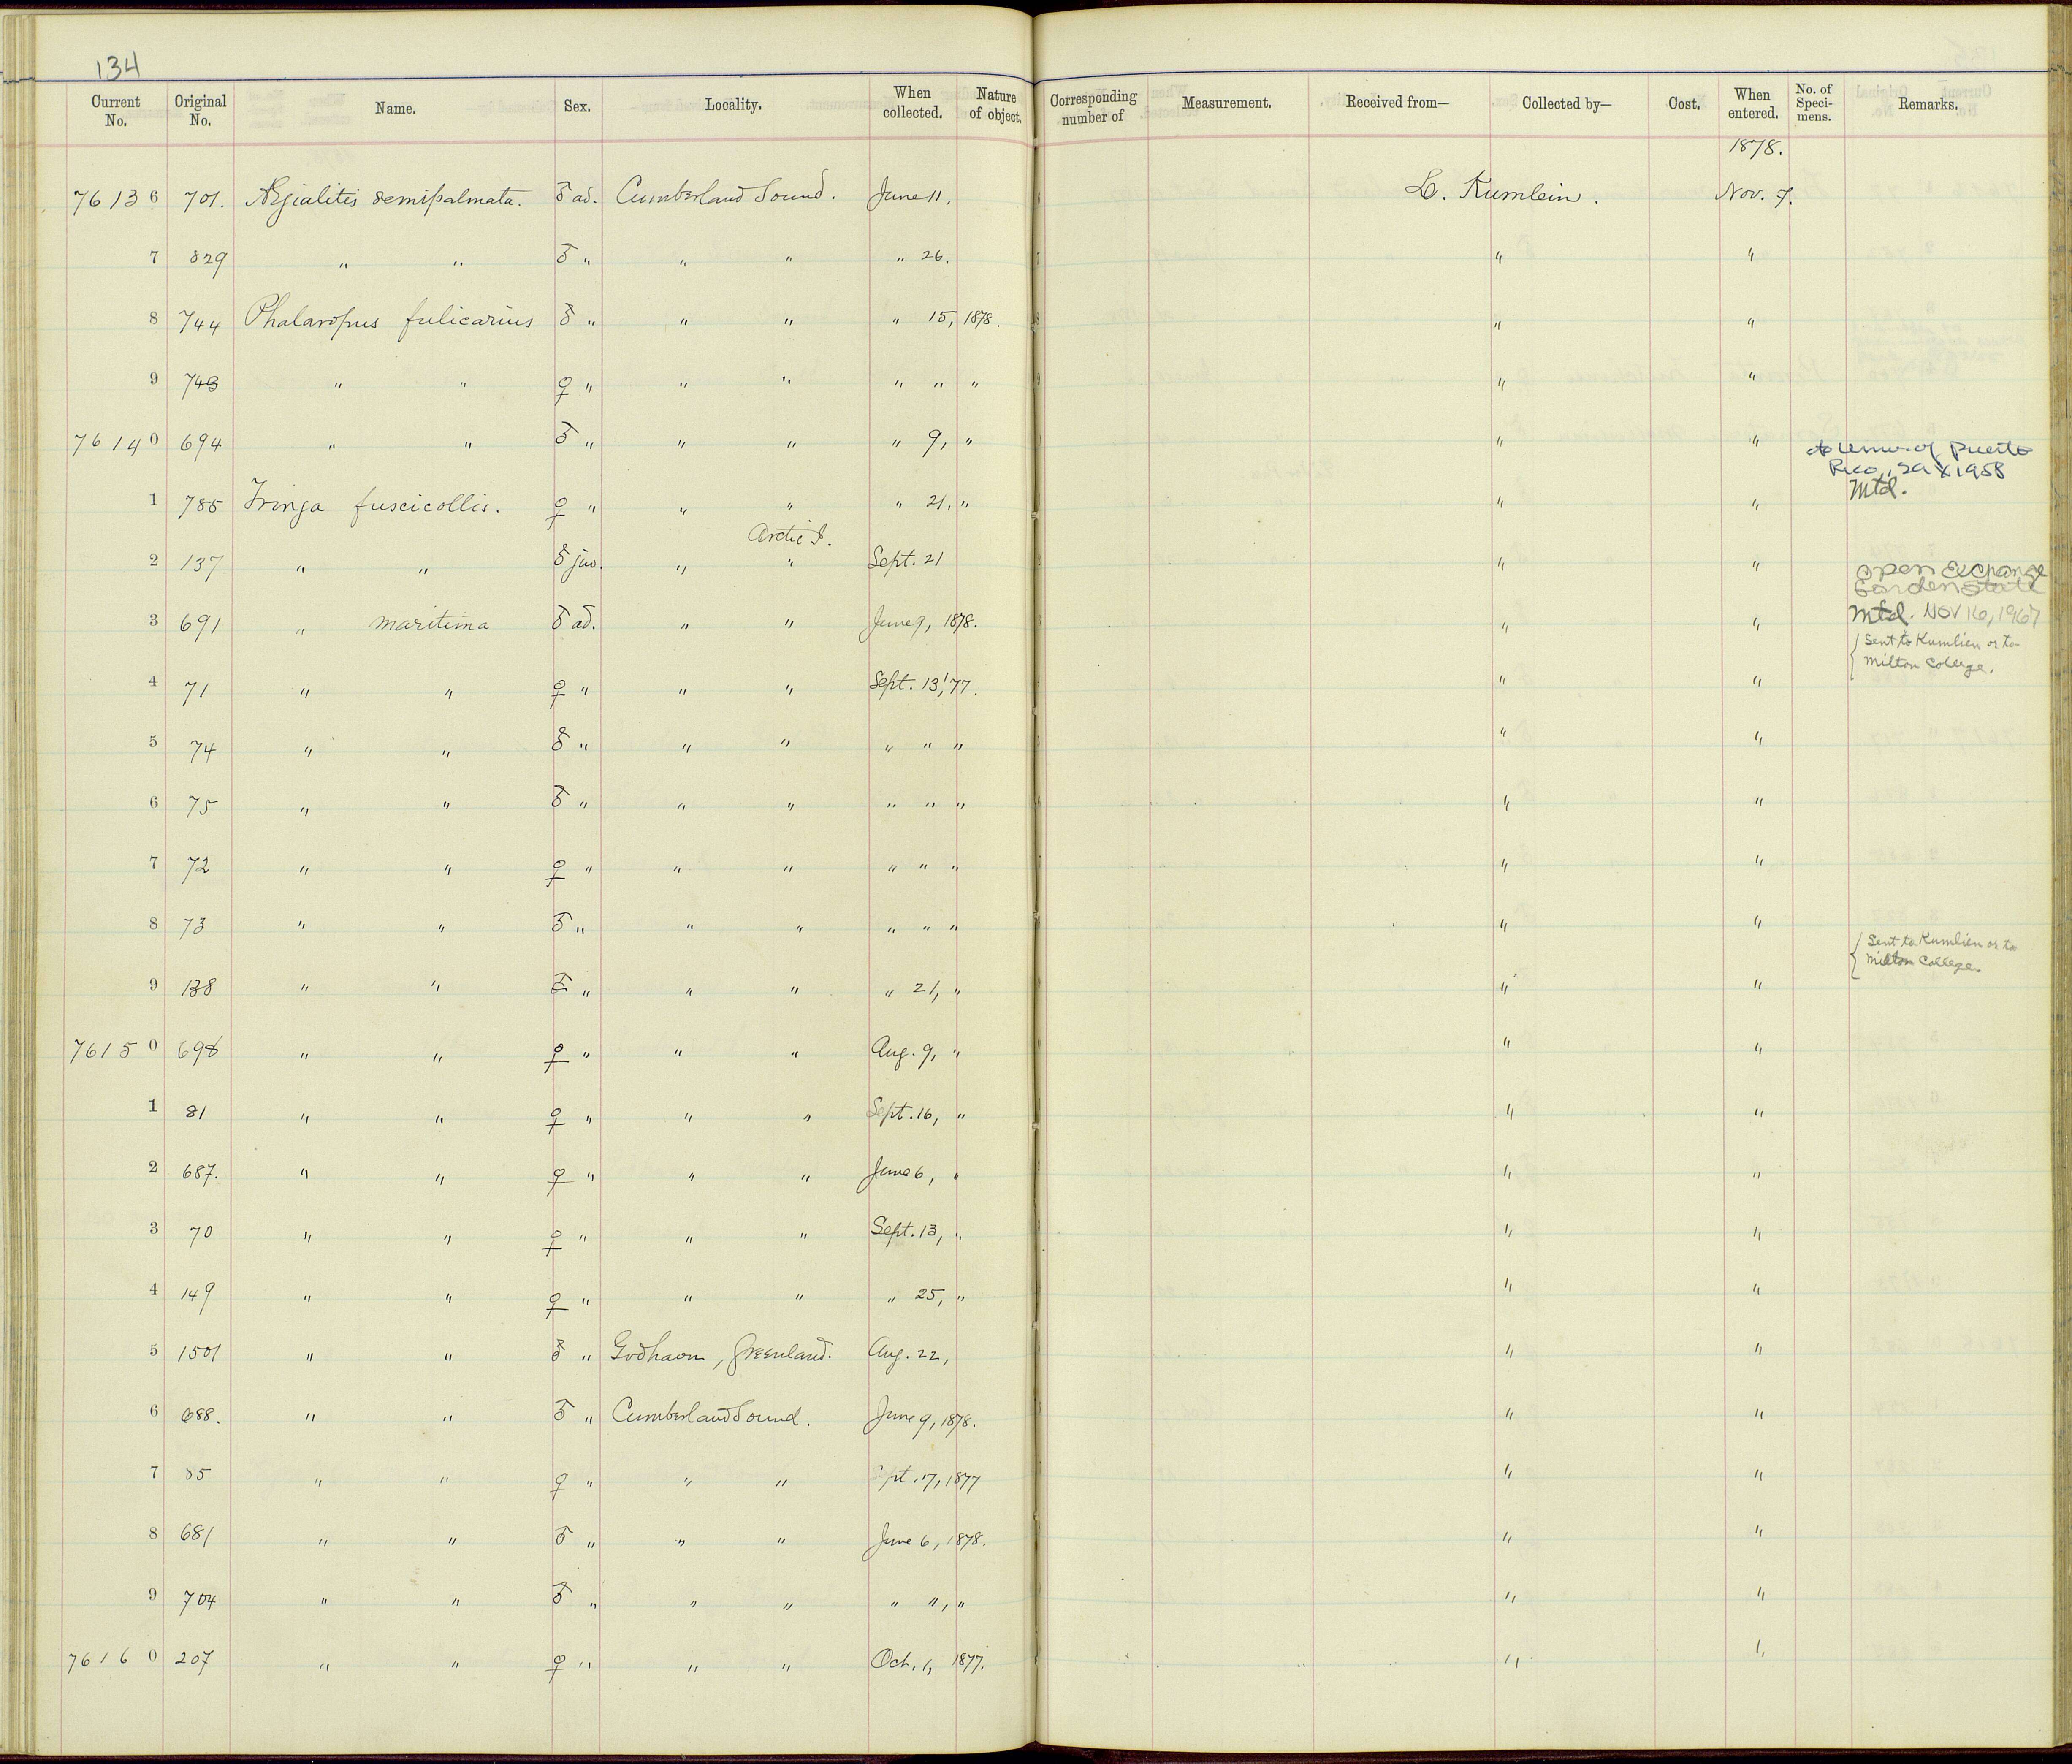 134
Current No. Original No. Name. Sex. Locality. When collected. Nature of object. Corresponding number of Measurement. Received from— Collected by— Cost. When entered. No. of Speci-mens. Remarks.
1878.
76136 701. Ægialitis semipalmata. ♂ ad. Cumberland Sound. June 11. L. Kumlein. Nov. 7.
7 829 " " ♂ " " " " 26. " "
8 744 Phalaropus fulicarius ♂ " " " " 15, 1878. " "
9 743 " " ♀ " " " " " " " "
76140 694 " " ♂ " " " " 9, " " "
to Univ. of Puerto
Rico, 1958
1 785 Tringa fuscicollis. ♀ " " " " 21, " " " Mtd.
Arctic I.
2 137 " " ♂ juv. " " Sept. 21 " "
open Exchange
Garden State
3 691 " maritima ♂ ad. " " June 9, 1878. " " Mtd. NOV 16, 1967
{ Sent to Kumlien or to
Milton College.
4 71 " " ♀ " " " Sept. 13, '77. " "
5 74 " " ♂ " " " " " " " "
6 75 " " ♂ " " " " " " " "
7 72 " " ♀ " " " " " " " "
8 73 " " ♂ " " " " " " " "
{ Sent to Kumlien or to
Milton College.
9 138 " " ♂ " " " " 21, " " "
76150 698 " " ♀ " " " Aug. 9, " " "
1 81 " " ♀ " " " Sept. 16, " " "
2 687. " " ♀ " " " June 6, " " "
3 70 " " ♀ " " " Sept. 13, " " "
4 149 " " ♀ " " " " 25, " " "
5 1501 " " ♂ " Godhavn, Greenland. Aug. 22, " "
6 688. " " ♂ " Cumberland Sound. June 9, 1878. " "
7 85 " " ♀ " " " Sept. 17, 1877 " "
8 681 " " ♂ " " " June 6, 1878. " "
9 704 " " ♂ " " " " ", " " "
76160 207 " " ♀ " " " Oct. 1, 1877. " "